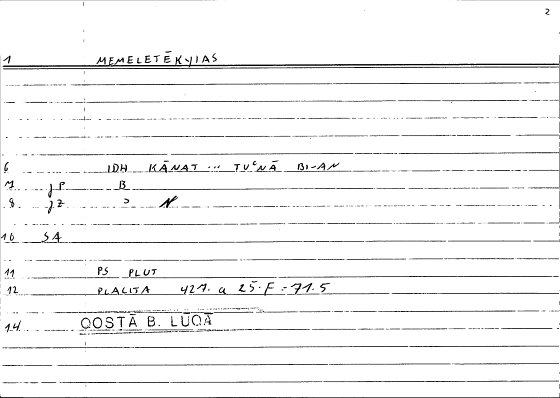 2
1 MEMELETĒKYIAS
6 IDH KĀNAT ... TUʿNĀ BI-AN
7 jP B
8 jZ N
10 SA
11 PS PLUT
12 PLACITA 427. a 25. F = 71.5
14 QOSTĀ B. LŪQĀ